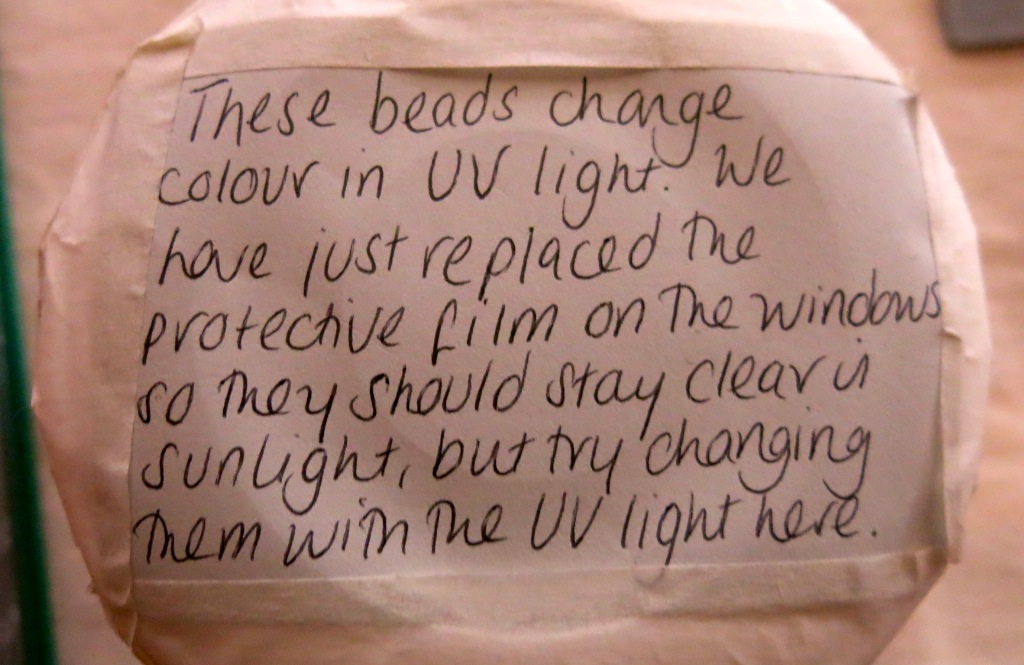 These beads change
colour in UV light. We
have just replaced the
protective film on the windows
so they should stay clear in
sunlight, but try changing
them with the UV light here.